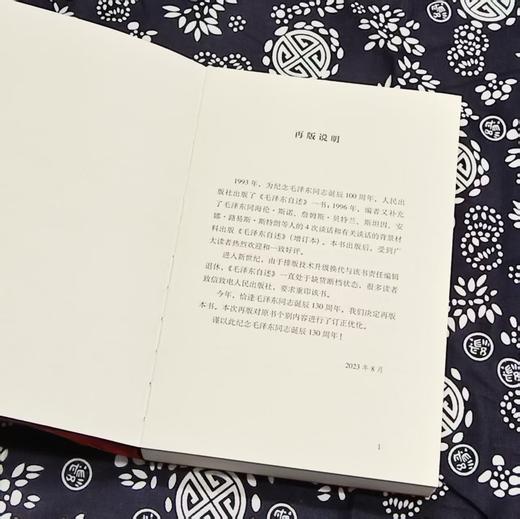 再版说明
1993 年，为纪念毛泽东同志诞辰 100 周年，人民出
版社出版了《毛泽东自述》一书；1996 年，编者又补充
了毛泽东同海伦·斯诺、詹姆斯·贝特兰、斯坦因、安
娜·路易斯·斯特朗等人的 4 次谈话和有关谈话的背景材
料出版《毛泽东自述》（增订本）。本书出版后，受到广
大读者热烈欢迎和一致好评。
进入新世纪，由于排版技术升级换代与该书责任编辑
退休，《毛泽东自述》一直处于缺货断档状态，很多读者
致信致电人民出版社，要求重印该书。
今年，恰逢毛泽东同志诞辰 130 周年，我们决定再版
本书。本次再版对原书个别内容进行了订正优化。
谨以此纪念毛泽东同志诞辰 130 周年！
2023 年 8 月
1